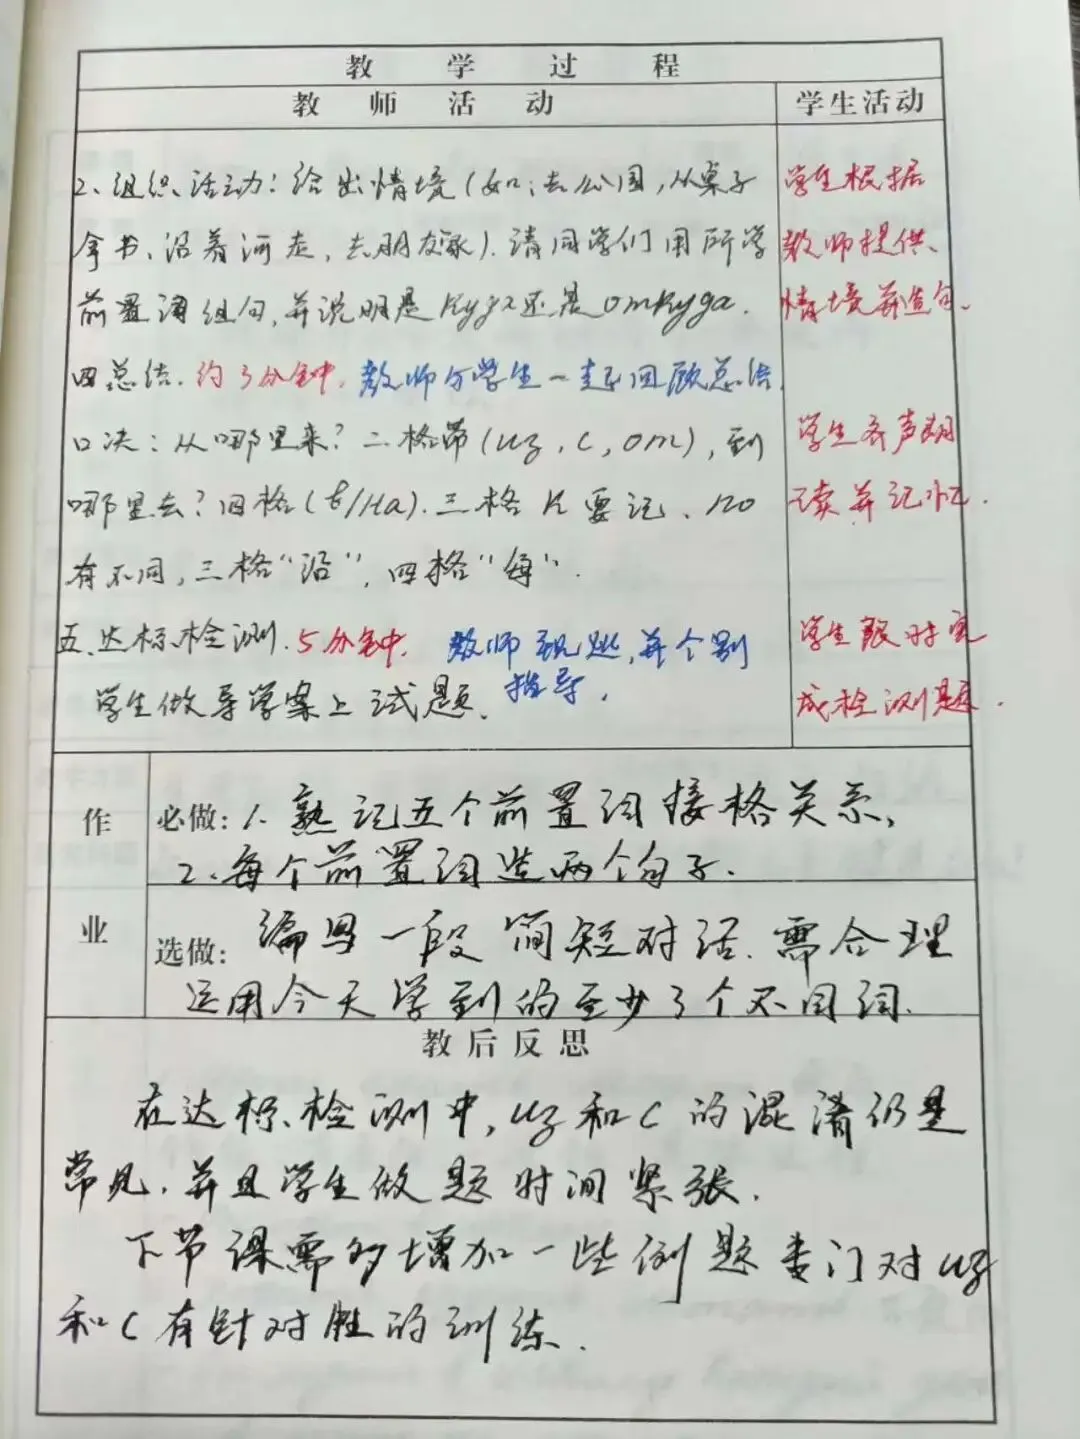 教学过程
教师活动
学生活动
2、组织活动：给出情境（如：去公园，从桌子
拿书、沿着河走，去朋友家）．请同学们用所学
前置词组句，并说明是Куда还是откуда．
四总结．约3分钟．教师与学生一起回顾总结．
口决：从哪里来？二格带（из，с，от），到
哪里去？四格（в/на）．三格к要记、по
有不同，三格“沿”，四格“每”．
五、达标检测．5分钟．教师巡，并个别
指导．
学生做导学案上试题．
学生根据
教师提供
情境并造句．
学生齐声朗
读并记忆．
学生限时完
成检测题．
作
业
必做：1、熟记五个前置词接格关系，
2、每个前置词造两个句子．
选做：编写一段简短对话．需合理
运用今天学到的至少3个不同词．
教后反思
在达标检测中，из和с的混淆仍是
常见．并且学生做题时间紧张．
下节课需多增加一些例题专门对из
和с有针对性的训练．